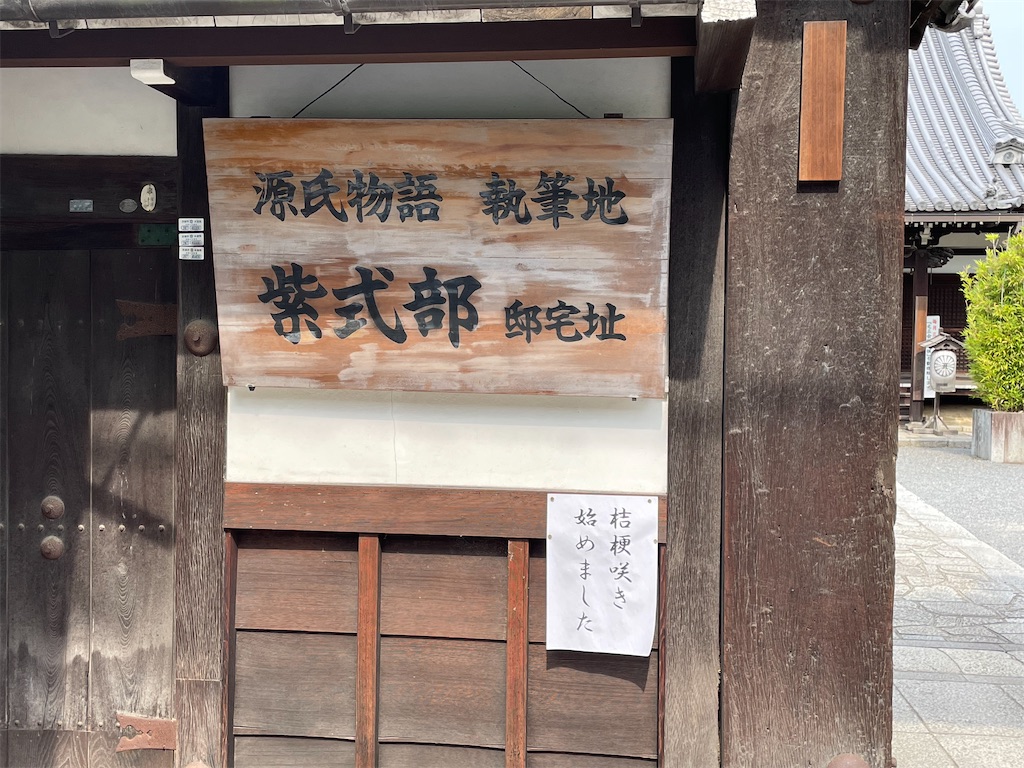 源氏物語 執筆地
紫式部 邸宅址
桔梗咲き
始めました